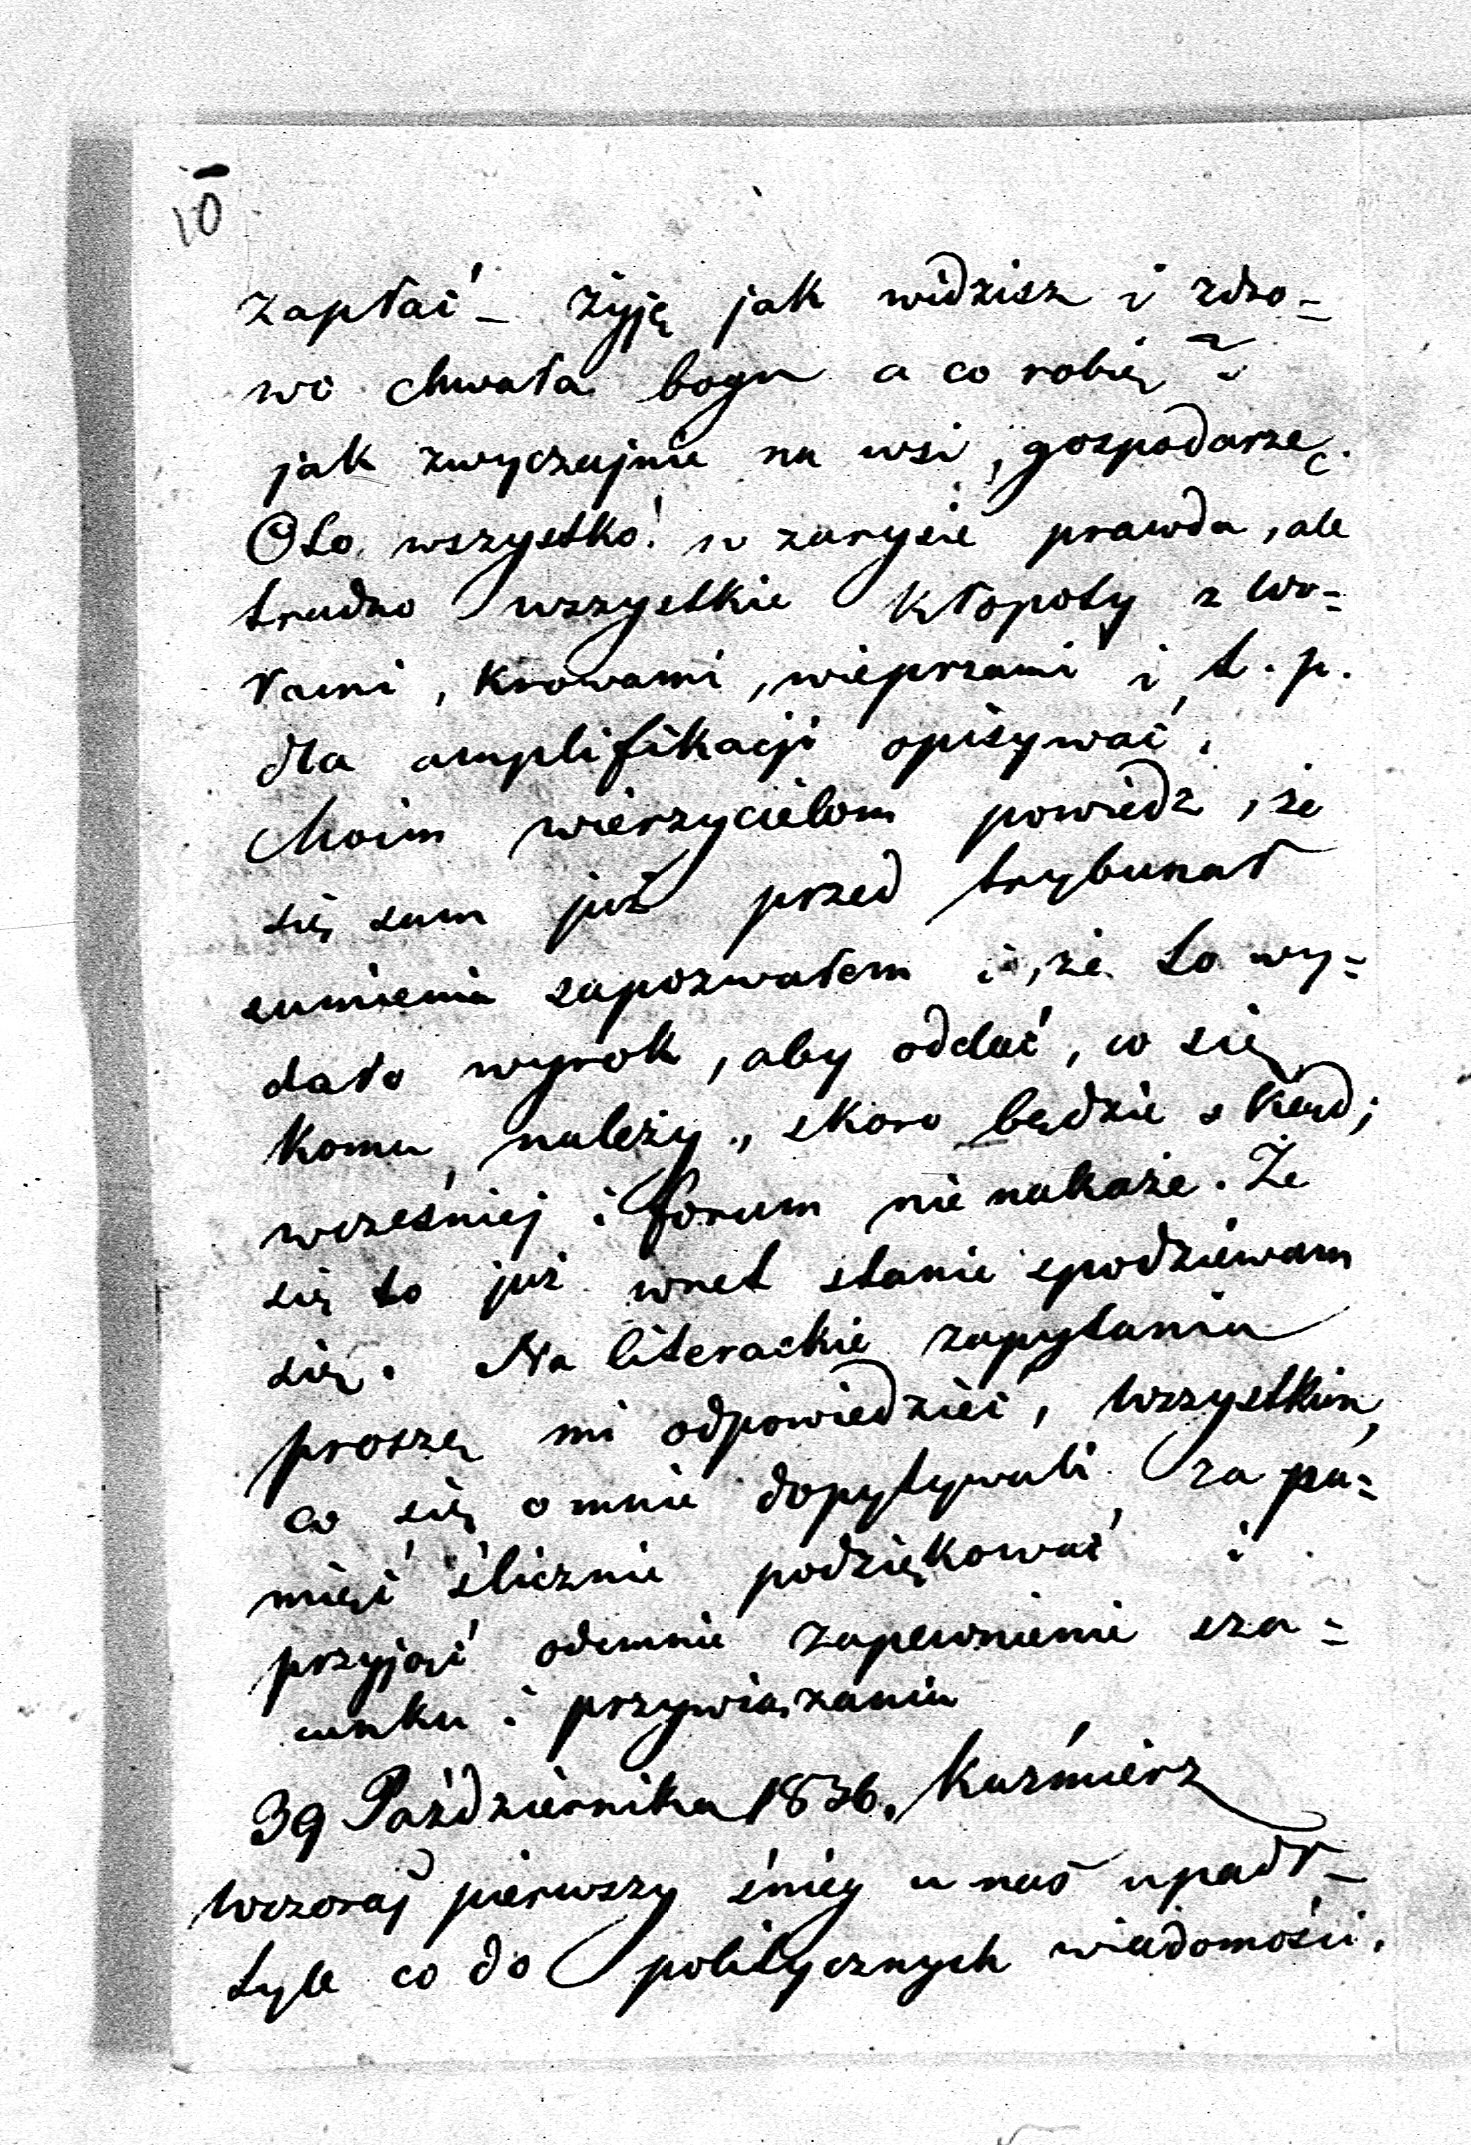 10
zapłać – żyję jak widzisz i zdro-
wo chwała bogu a co robię?
jak zwyczajnie na wsi, gospodarzę.
Oto wszystko! w zarysie prawda, ale
trudno wszystkie kłopoty z wo-
łami, krowami, wieprzami i t. p.
dla amplifikacji opisywać.
Moim wierzycielom powiedz, że
się sam już przed trybunał
sumienia zapozwałem i, że to wy-
dało wyrok, aby oddać, co się
komu należy, skoro będzie skąd;
wcześniej i forum nie nakaże. Że
się to już wnet stanie spodziewam
się. Na literackie zapytania
proszę mi odpowiedzieć, wszystkim,
co się o mnie dopytywali za pa-
mięć ślicznie podziękować i
przyjąć odemnie zapewnienie sza-
cunku i przywiązania
39 Października 1836. Kaźmierz
Wczoraj pierwszy śnieg u nas upadł –
tyle co do politycznych wiadomości.